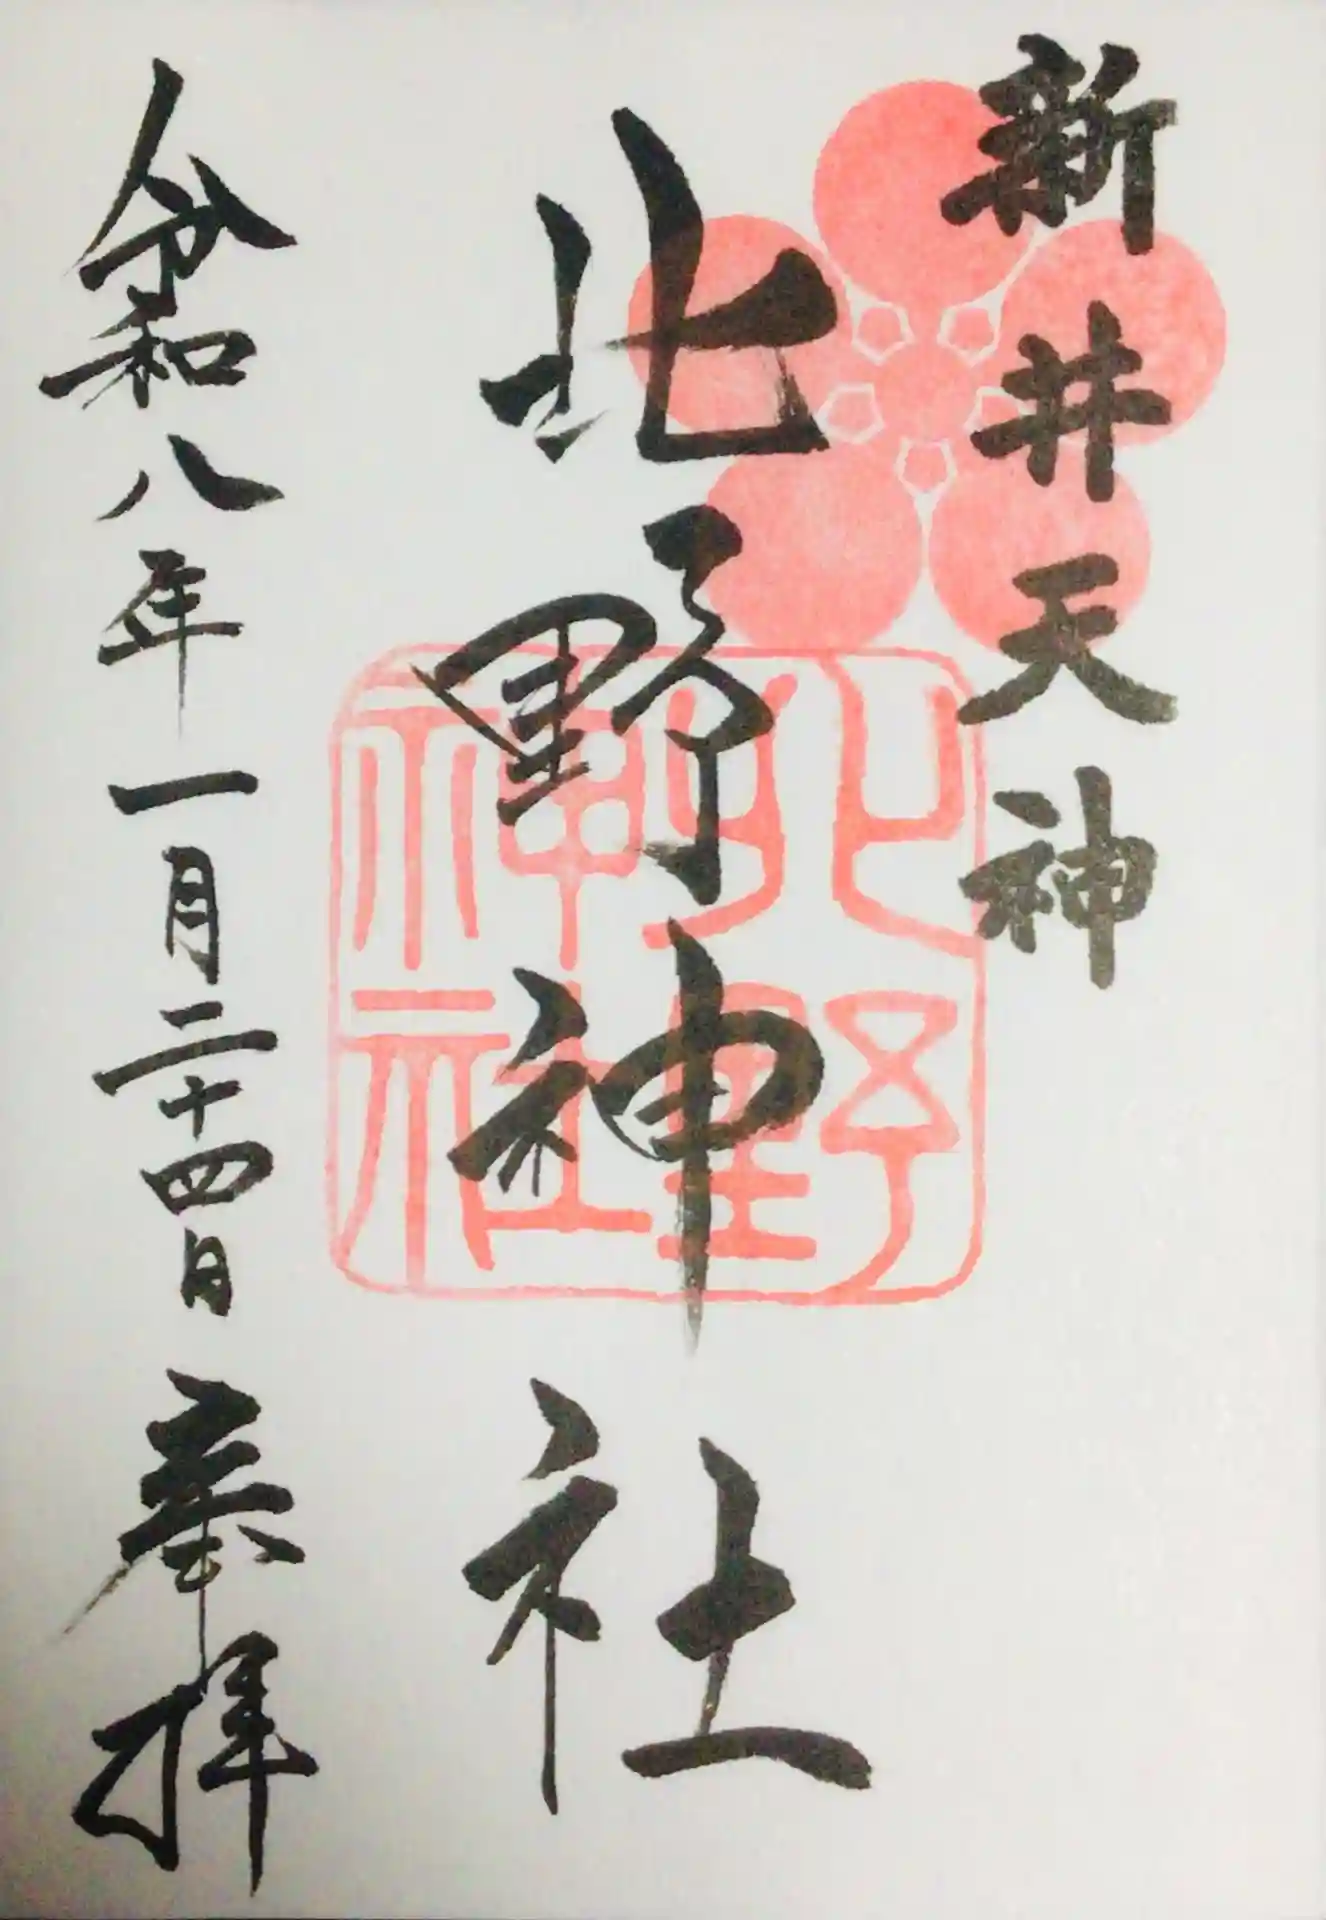 新井天神
北野神社
令和八年一月二十四日奉拝
北野
神社